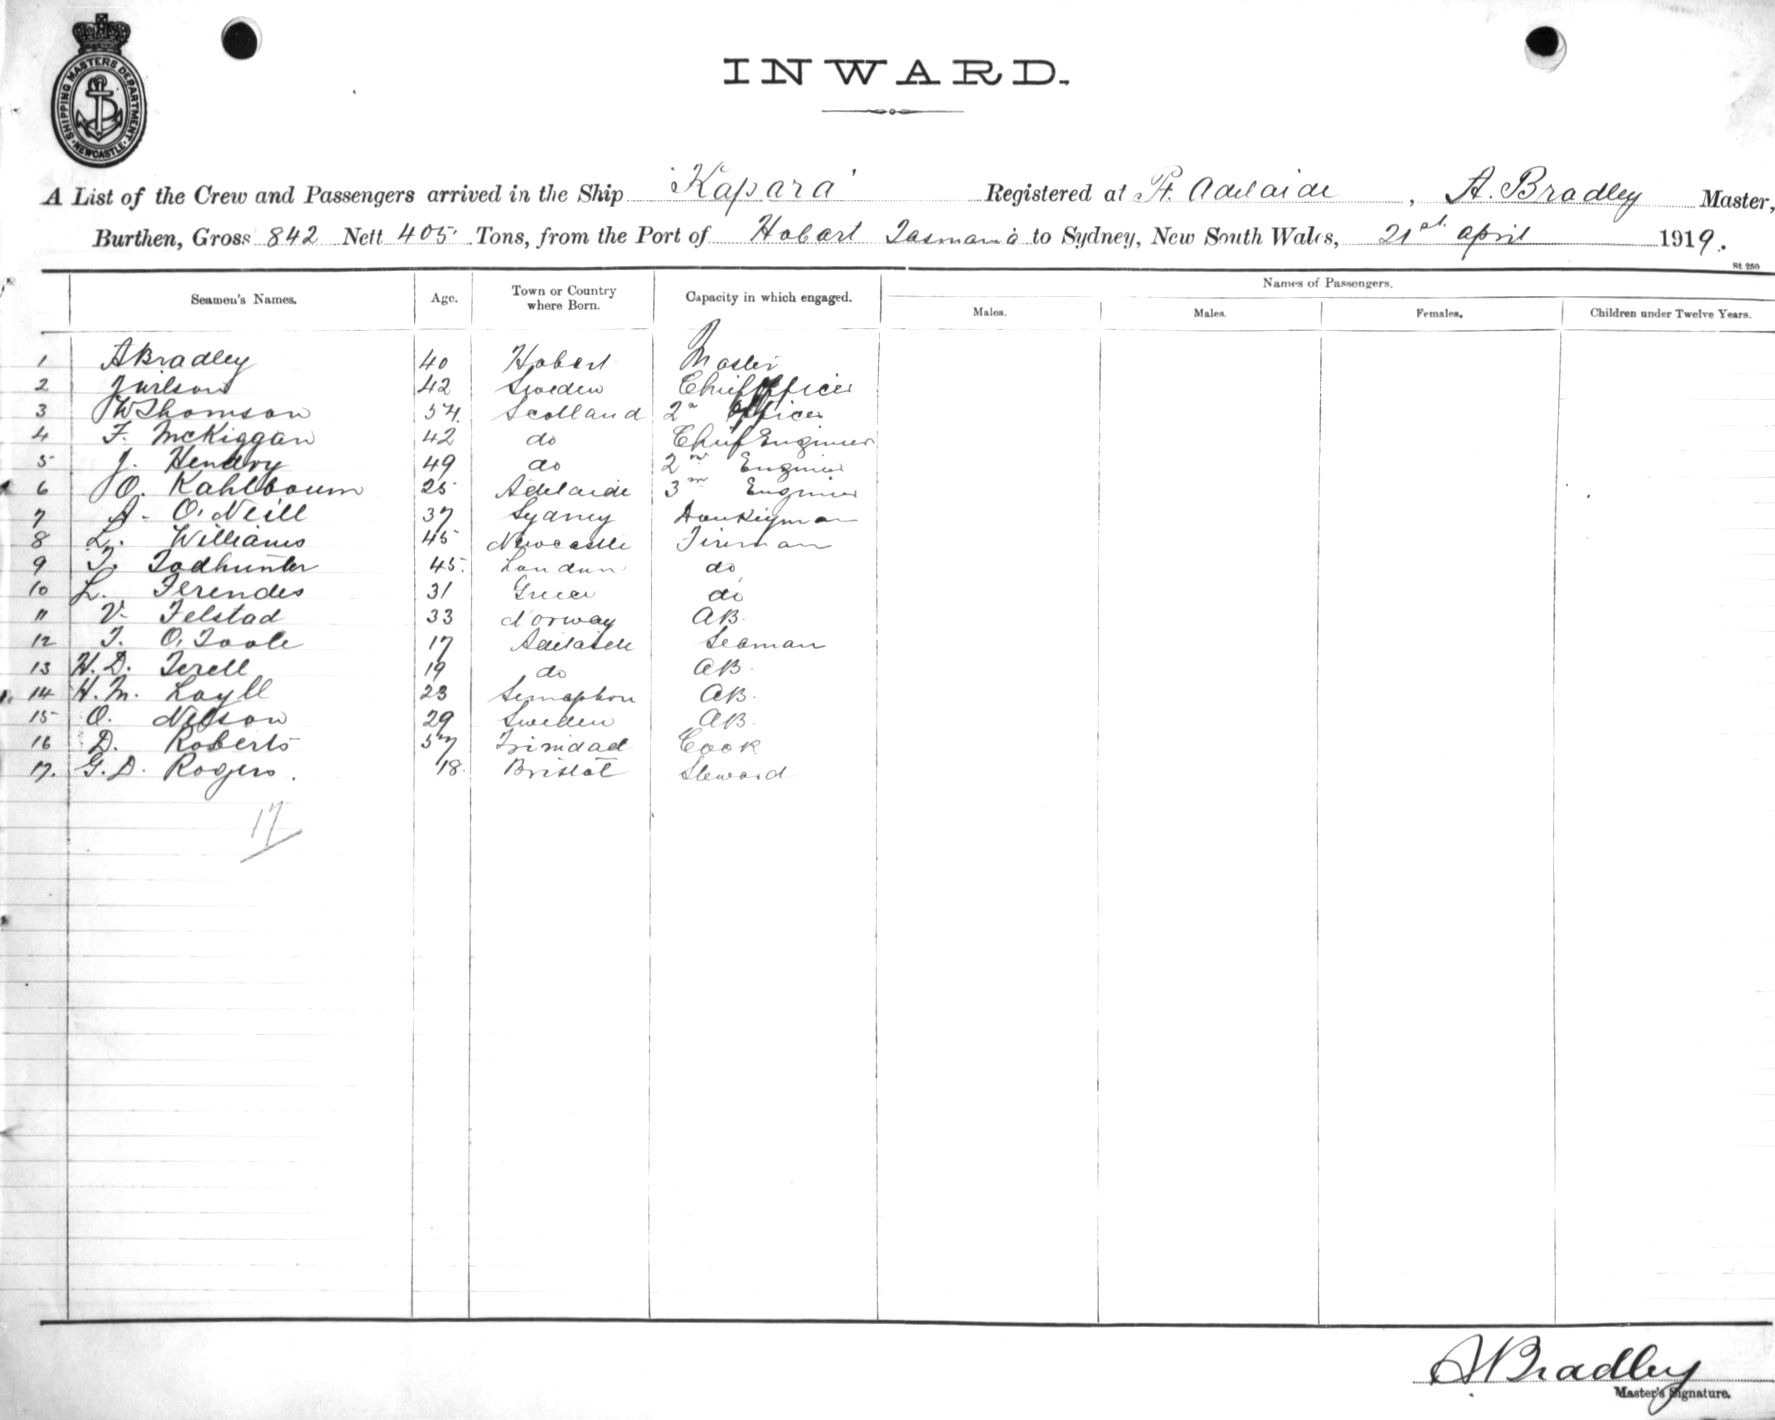 SHIPPING MASTERS DEPARTMENT
NEWCASTLE
INWARD.
A List of the Crew and Passengers arrived in the Ship "Kapara" Registered at Pt. Adelaide, A. Bradley Master,
Burthen, Gross 842 Nett 405 Tons, from the Port of Hobart Tasmania to Sydney, New South Wales, 21st April 1919.
St. 250
Seamen's Names. Age. Town or Country where Born. Capacity in which engaged. Names of Passengers.
Males. Males. Females. Children under Twelve Years.
1 A Bradley 40 Hobart Master
2 J Wilson 42 Sweden Chief Officer
3 W Thomson 54 Scotland 2n Officer
4 F. McKiggan 42 do Chief Engineer
5 J. Hendry 49 do 2n Engineer
6 O. Kahlbaum 25 Adelaide 3rd Engineer
7 A. O'Neill 37 Sydney Donkeyman
8 L. Williams 45 Newcastle Fireman
9 T. Todhunter 45 London do
10 L. Ferendes 31 Greece do
11 V. Felstad 33 Norway AB.
12 T. O'Toole 17 Adelaide Seaman
13 H. D. Terell 19 do AB.
14 H. M. Layll 23 Semaphore AB.
15 O. Nelson 29 Sweden AB.
16 D. Roberts 57 Trinidad Cook
17. G. D. Rogers. 18. Bristol Steward
17
A Bradley
Master's Signature.